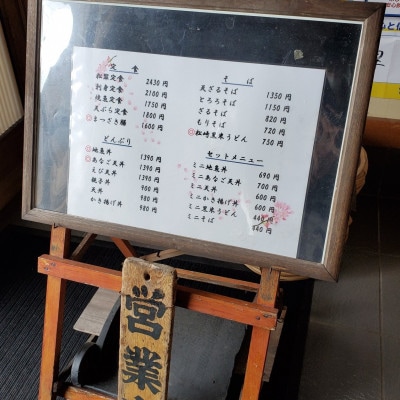 定食
松葉定食 2430円
刺身定食 2100円
地魚定食 1750円
天ぷら定食 1800円
◎まつざき膳 1600円
どんぶり
◎地魚丼 1390円
◎あなご天丼 1390円
えび天丼 1390円
鉄方丼 900円
天丼 980円
かき揚げ丼 980円
そば
天ざるそば 1350円
とろろそば 1150円
ざるそば 820円
もりそば 720円
◎松崎黒米うどん 750円
セットメニュー
ミニ地魚丼 690円
ミニあなご天丼 700円
ミニ天丼 600円
ミニかき揚げ丼 600円
ミニ黒米うどん 440円
ミニそば 440円
営業